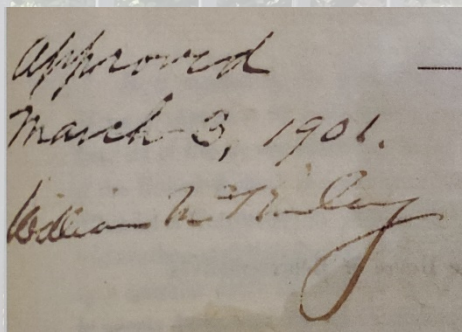 Approved
March 3, 1901.
William McKinley